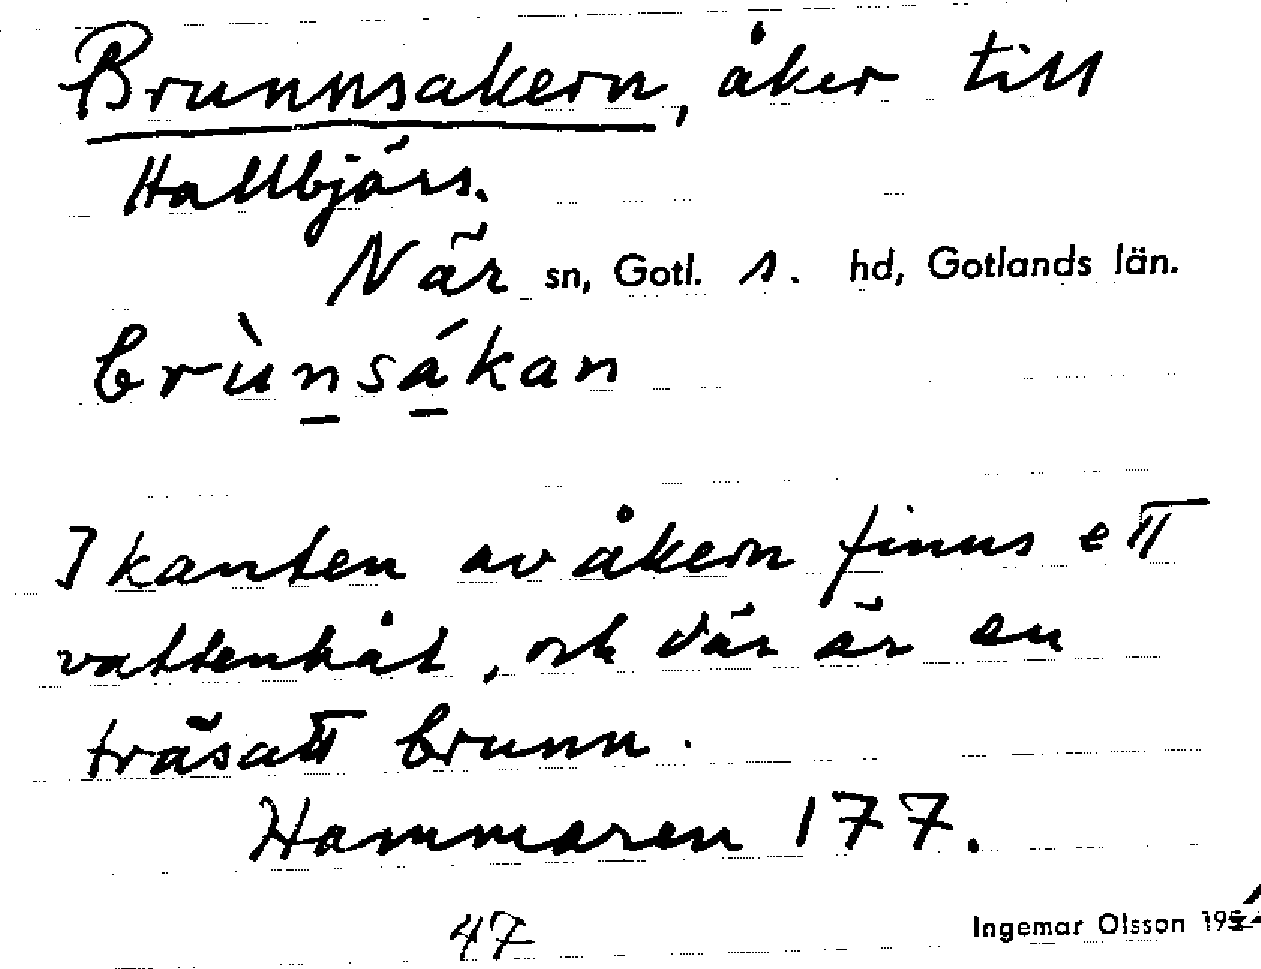 Brunnsakern, åker till
Hallbjärs.
När sn, Gotl. s. hd, Gotlands län.
brùnsákan
I kanten av åkern finns ett
vattenhål, och där är en
träsatt brunn.
Hammaren 177.
47
Ingemar Olsson